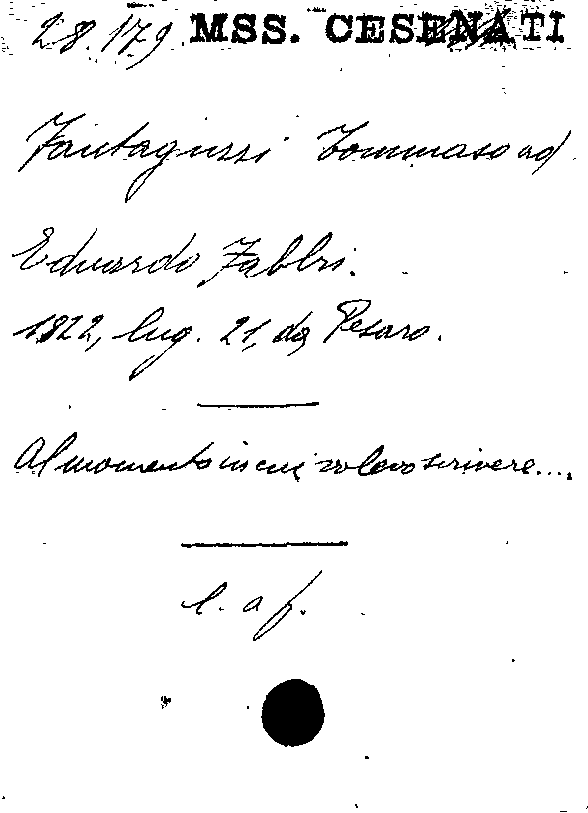 28.179 MSS. CESENATI
Fantaguzzi Tommaso ad
Eduardo Fabbri.
1822, lug. 21, da Pesaro.
Al momento in cui volevo scrivere....
l. a f.